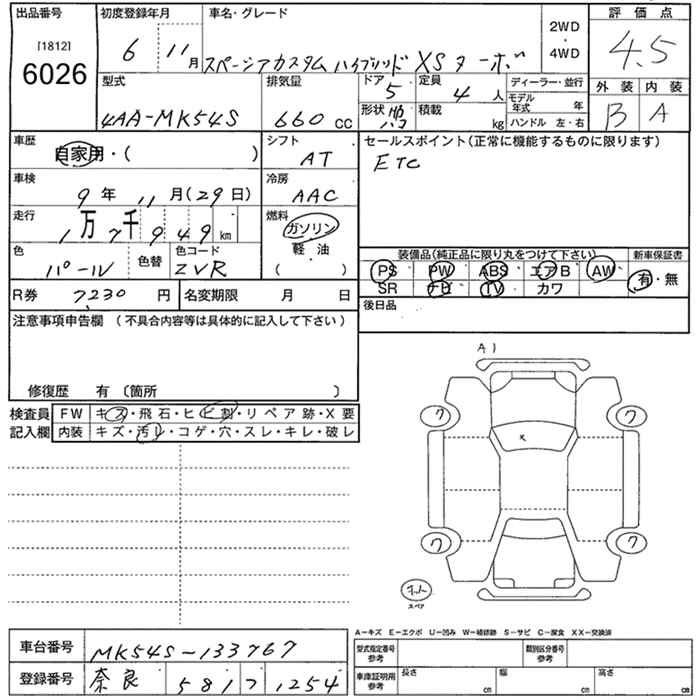 出品番号 初度登録年月 車名・グレード 評価点
[1812] 6026
6 11月 スペーシアカスタム ハイブリッド XS ターボ 2WD・4WD 4.5
型式 排気量 ドア 定員 ディーラー・並行 外装 内装
4AA-MK54S 660 cc 5 4人 モデル年式 年 B A
形状 積載 kg ハンドル 左・右
車歴 自家用・( ) シフト AT セールスポイント(正常に機能するものに限ります)
ETC
車検 9年 11月(29日) 冷房 AAC
走行 1万7千949km 燃料 ガソリン
軽・油
( ・ )
色 パール 色替 色コード ZVR
装備品(純正品に限り丸をつけて下さい) 新車保証書
PS PW ABS エアB AW 有・無
SR ナビ TV カワ
R券 7,230円 名変期限 月 日 後日品
注意事項申告欄(不具合内容等は具体的に記入して下さい)
修復歴 有〔箇所 〕
検査員 FW キズ・飛石・ヒビ割・リペア跡・X要
記入欄 内装 キズ・汚レ・コゲ・穴・スレ・キレ・破レ
A1
ワ ワ
x
ワ ワ
スペア
A-キズ E-エクボ U-凹み W-補修跡 S-サビ C-腐食 XX-交換済
車台番号 MK54S-133767
登録番号 奈良 581 1254
型式指定番号 参考 類別区分番号 参考
車庫証明用 参考 長さ cm 幅 cm 高さ cm